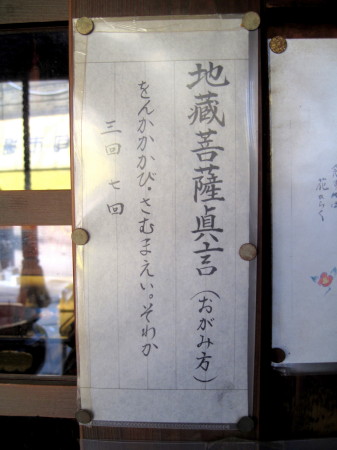 地蔵菩薩真言(おがみ方)
をんかかかび・さむまえい。そわか
三回 七回